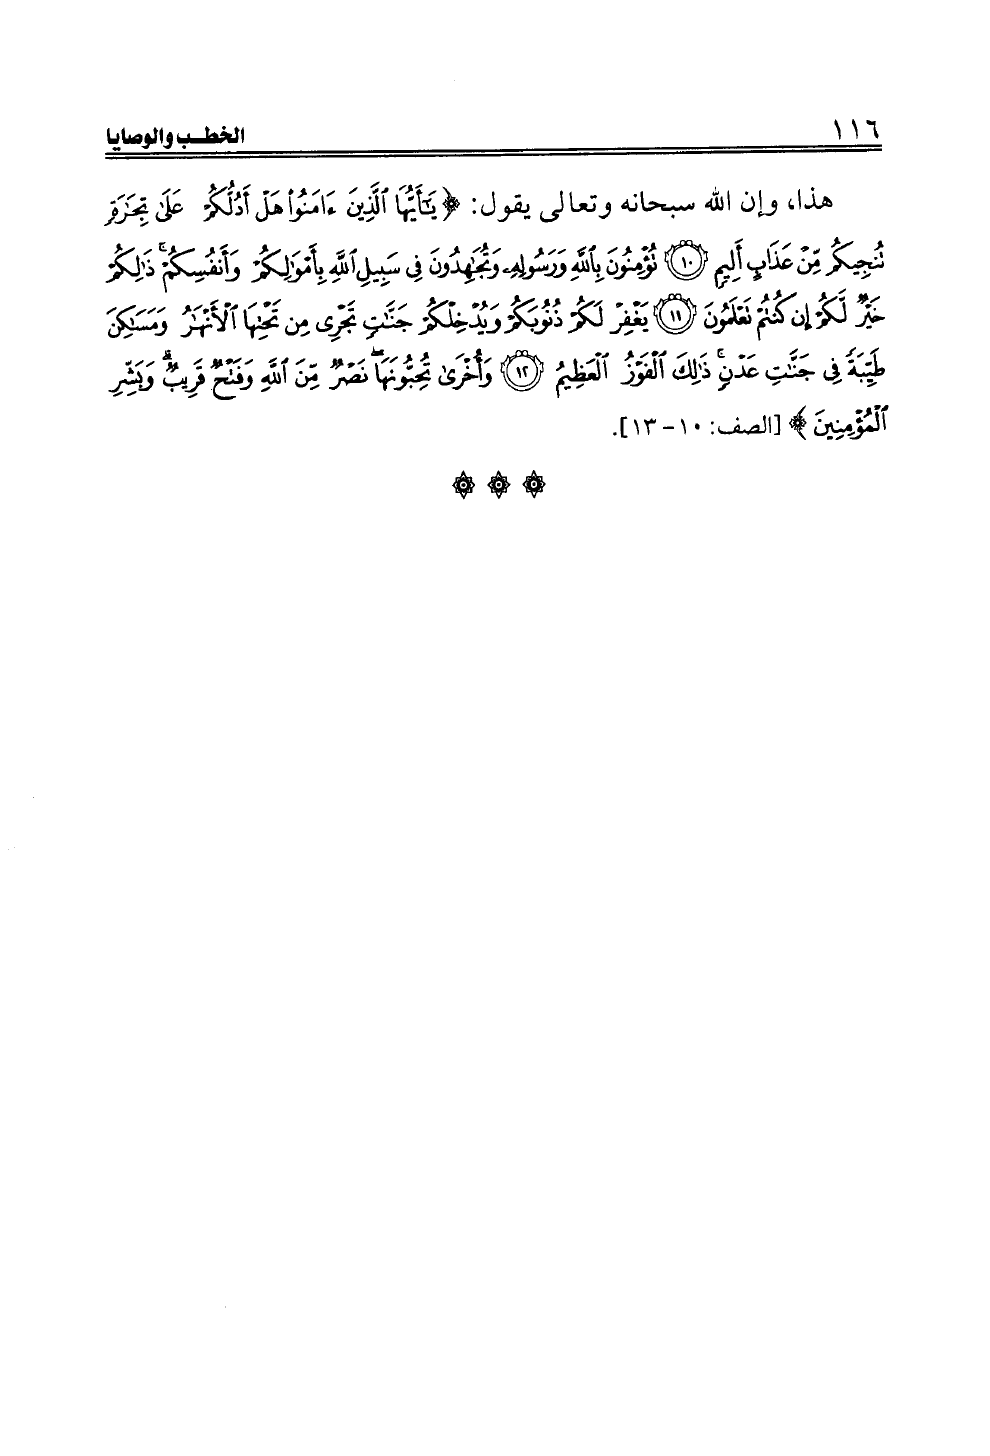 ١١٦ الخطب والوصايا
هذا، وإن الله سبحانه وتعالى يقول: ﴿ يَٰٓأَيُّهَا ٱلَّذِينَ ءَامَنُوا۟ هَلْ أَدُلُّكُمْ عَلَىٰ تِجَٰرَةٍ
تُنجِيكُم مِّنْ عَذَابٍ أَلِيمٍ ⑩ تُؤْمِنُونَ بِٱللَّهِ وَرَسُولِهِۦ وَتُجَٰهِدُونَ فِى سَبِيلِ ٱللَّهِ بِأَمْوَٰلِكُمْ وَأَنفُسِكُمْ ۚ ذَٰلِكُمْ
خَيْرٌ لَّكُمْ إِن كُنتُمْ تَعْلَمُونَ ⑪ يَغْفِرْ لَكُمْ ذُنُوبَكُمْ وَيُدْخِلْكُمْ جَنَّٰتٍ تَجْرِى مِن تَحْتِهَا ٱلْأَنْهَٰرُ وَمَسَٰكِنَ
طَيِّبَةً فِى جَنَّٰتِ عَدْنٍ ۚ ذَٰلِكَ ٱلْفَوْزُ ٱلْعَظِيمُ ⑫ وَأُخْرَىٰ تُحِبُّونَهَا ۖ نَصْرٌ مِّنَ ٱللَّهِ وَفَتْحٌ قَرِيبٌ ۗ وَبَشِّرِ
ٱلْمُؤْمِنِينَ ﴾ [الصف: ١٠-١٣].